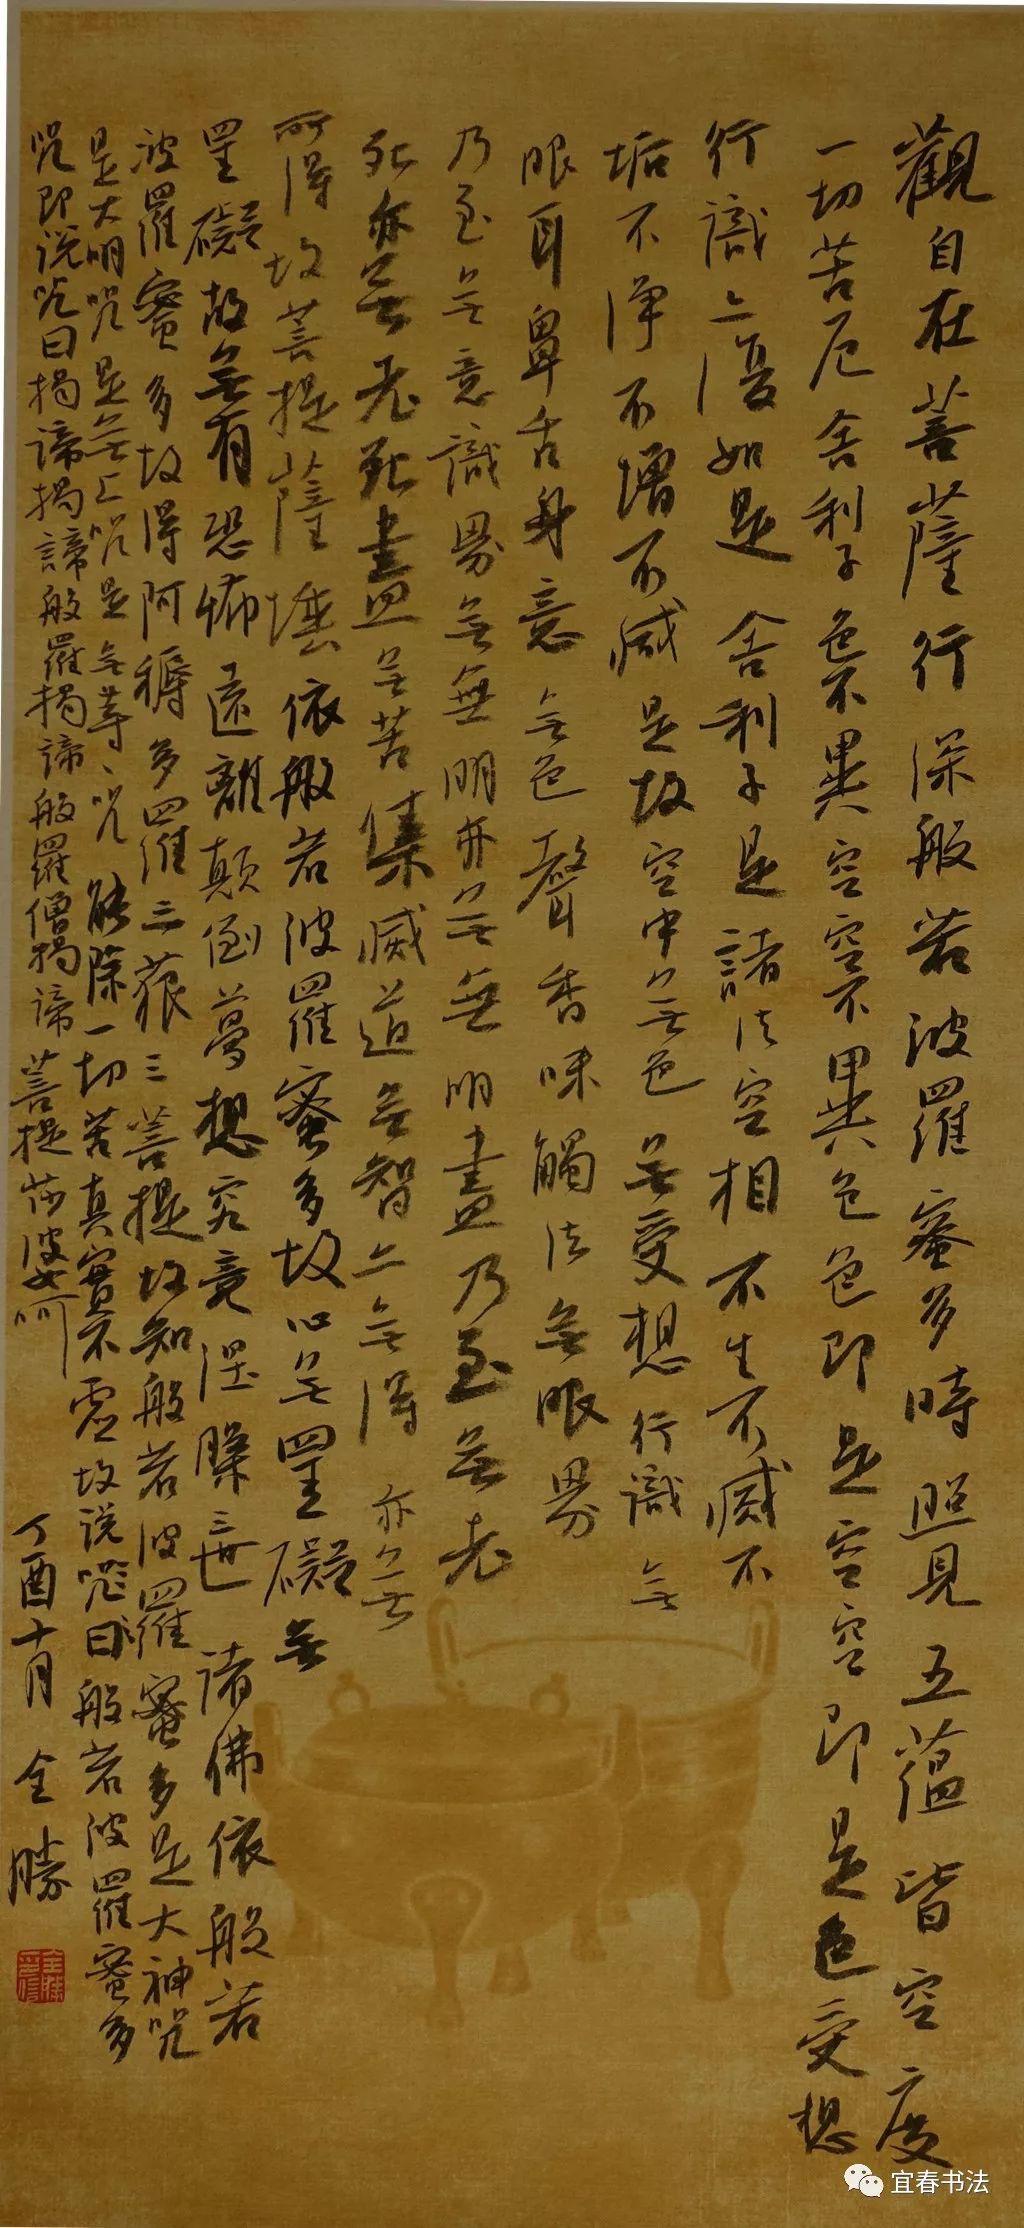 觀自在菩薩行深般若波羅蜜多時照見五蘊皆空度
一切苦厄舍利子色不異空空不異色色即是空空即是色受想
行識亦復如是舍利子是諸法空相不生不滅不
垢不淨不增不減是故空中無色無受想行識無
眼耳鼻舌身意無色聲香味觸法無眼界
乃至無意識界無無明亦無無明盡乃至無老
死亦無老死盡無苦集滅道無智亦無得亦無
所得故菩提薩埵依般若波羅蜜多故心無罣礙無
罣礙故無有恐怖遠離顛倒夢想究竟涅槃三世諸佛依般若
波羅蜜多故得阿耨多羅三藐三菩提故知般若波羅蜜多是大神咒
是大明咒是無上咒是無等、咒能除一切苦真實不虛故說咒曰般若波羅蜜多
咒即說咒曰揭諦揭諦般羅揭諦般羅僧揭諦菩提莎婆呵
丁酉十月 全勝
宜春书法